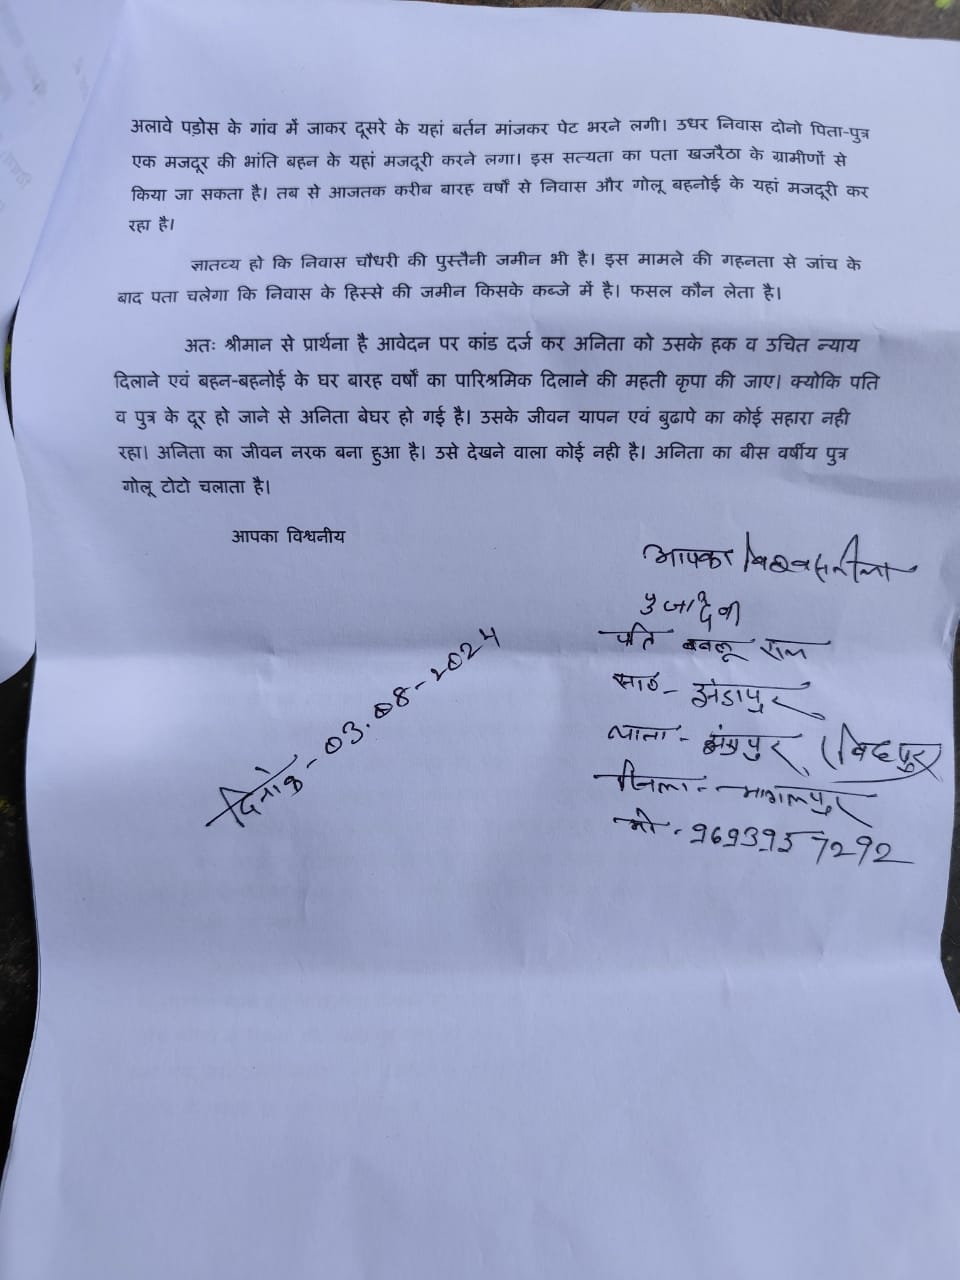 अलावे पड़ोस के गांव में जाकर दूसरे के यहां बर्तन मांजकर पेट भरने लगी। उधर निवास दोनो पिता-पुत्र
एक मजदूर की भांति बहन के यहां मजदूरी करने लगा। इस सत्यता का पता खजरैठा के ग्रामीणों से
किया जा सकता है। तब से आजतक करीब बारह वर्षों से निवास और गोलू बहनोई के यहां मजदूरी कर
रहा है।
ज्ञातव्य हो कि निवास चौधरी की पुस्तैनी जमीन भी है। इस मामले की गहनता से जांच के
बाद पता चलेगा कि निवास के हिस्से की जमीन किसके कब्जे में है। फसल कौन लेता है।
अतः श्रीमान से प्रार्थना है आवेदन पर कांड दर्ज कर अनिता को उसके हक व उचित न्याय
दिलाने एवं बहन-बहनोई के घर बारह वर्षों का पारिश्रमिक दिलाने की महती कृपा की जाए। क्योकि पति
व पुत्र के दूर हो जाने से अनिता बेघर हो गई है। उसके जीवन यापन एवं बुढापे का कोई सहारा नही
रहा। अनिता का जीवन नरक बना हुआ है। उसे देखने वाला कोई नही है। अनिता का बीस वर्षीय पुत्र
गोलू टोटो चलाता है।
आपका विश्वनीय
आपका
पुजा देवी
पति बबलू
साo- झंडापुर
(बिहपुर)
जिला - भागलपुर
मो - 9693957292
दिनांक - 03.08-2024